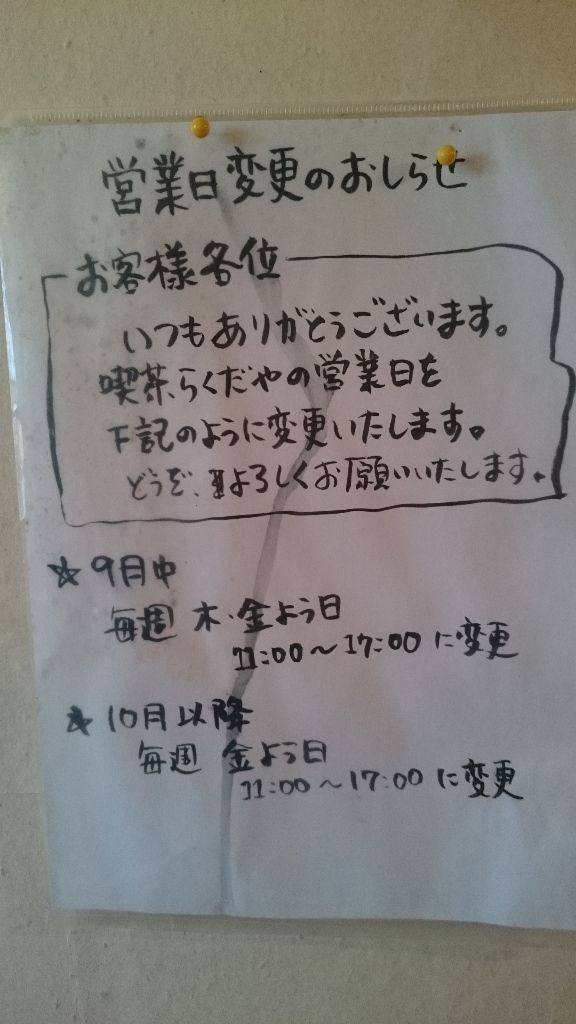 営業日変更のおしらせ
お客様各位
いつもありがとうございます。
喫茶らくだやの営業日を
下記のように変更いたします。
どうぞ、よろしくお願いいたします。
☆ 9月中
毎週 木・金よう日
11:00～17:00 に変更
☆ 10月以降
毎週 金よう日
11:00～17:00 に変更